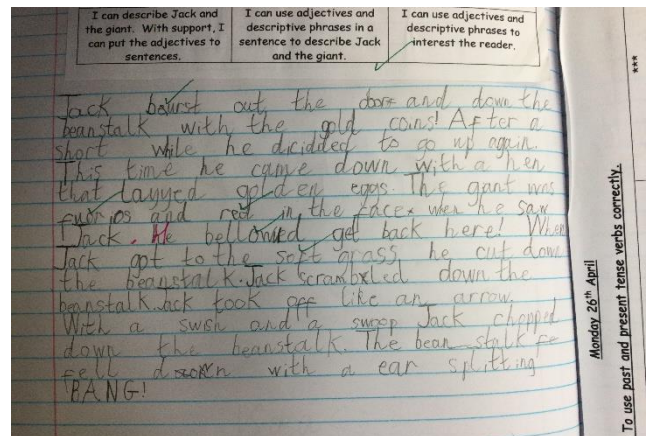 I can describe Jack and the giant. With support, I can put the adjectives to sentences.
I can use adjectives and descriptive phrases in a sentence to describe Jack and the giant.
I can use adjectives and descriptive phrases to interest the reader.
Jack baurst out the door and down the
beanstalk with the gold coins! After a
short while he dicidded to go up again.
This time he came down with a hen
that layyed golden eggs. The gant was
fuorios and red in the face when he saw
Jack. He bellowed get back here! When
Jack got to the soft grass he cut down
the beanstalk. Jack scrambled down the
beanstalk. Jack took off like an arrow.
With a swish and a swoop Jack chopped
down the beanstalk. The bean stalk fe
fell down with a ear splitting
BANG!
Monday 26th April
To use past and present tense verbs correctly.
***